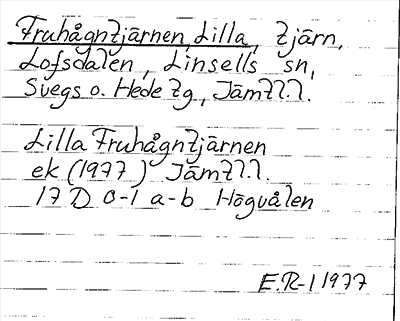 Fruhågntjärnen, Lilla, tjärn,
Lofsdalen, Linsells sn,
Svegs o. Hede tg., Jämtl.l.
Lilla Fruhågntjärnen
ek (1977) Jämtl.l.
17 D 0-1 a-b Högvålen
E.R-l 1977